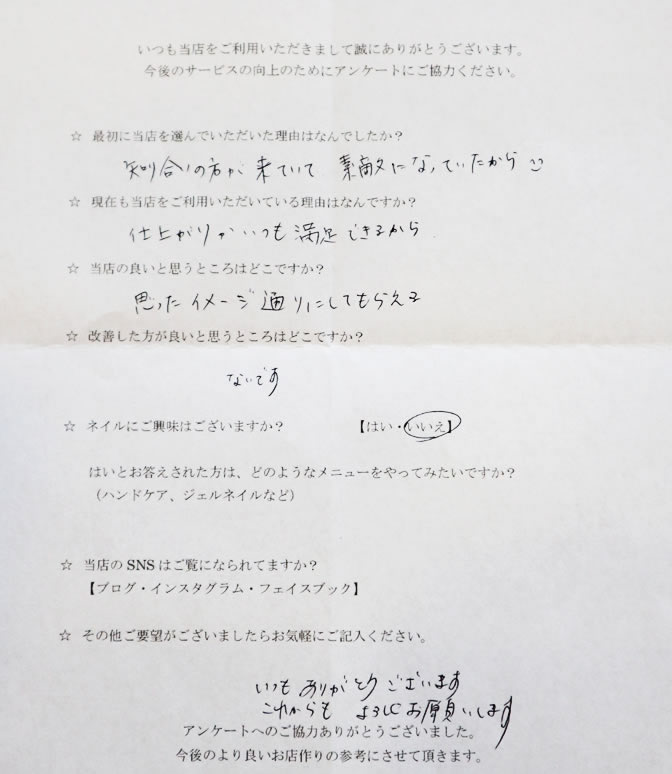 いつも当店をご利用いただきまして誠にありがとうございます。
今後のサービスの向上のためにアンケートにご協力ください。
☆ 最初に当店を選んでいただいた理由はなんでしたか？
知り合いの方が来ていて 素敵になっていたから
☆ 現在も当店をご利用いただいている理由はなんですか？
仕上がりがいつも満足できるから
☆ 当店の良いと思うところはどこですか？
思ったイメージ通りにしてもらえる
☆ 改善した方が良いと思うところはどこですか？
ないです
☆ ネイルにご興味はございますか？ 【はい・いいえ】
はいとお答えされた方は、どのようなメニューをやってみたいですか？
（ハンドケア、ジェルネイルなど）
☆ 当店の SNS はご覧になられてますか？
【ブログ・インスタグラム・フェイスブック】
☆ その他ご要望がございましたらお気軽にご記入ください。
いつも ありがとうございます
これからも よろしくお願いします
アンケートへのご協力ありがとうございました。
今後のより良いお店作りの参考にさせて頂きます。